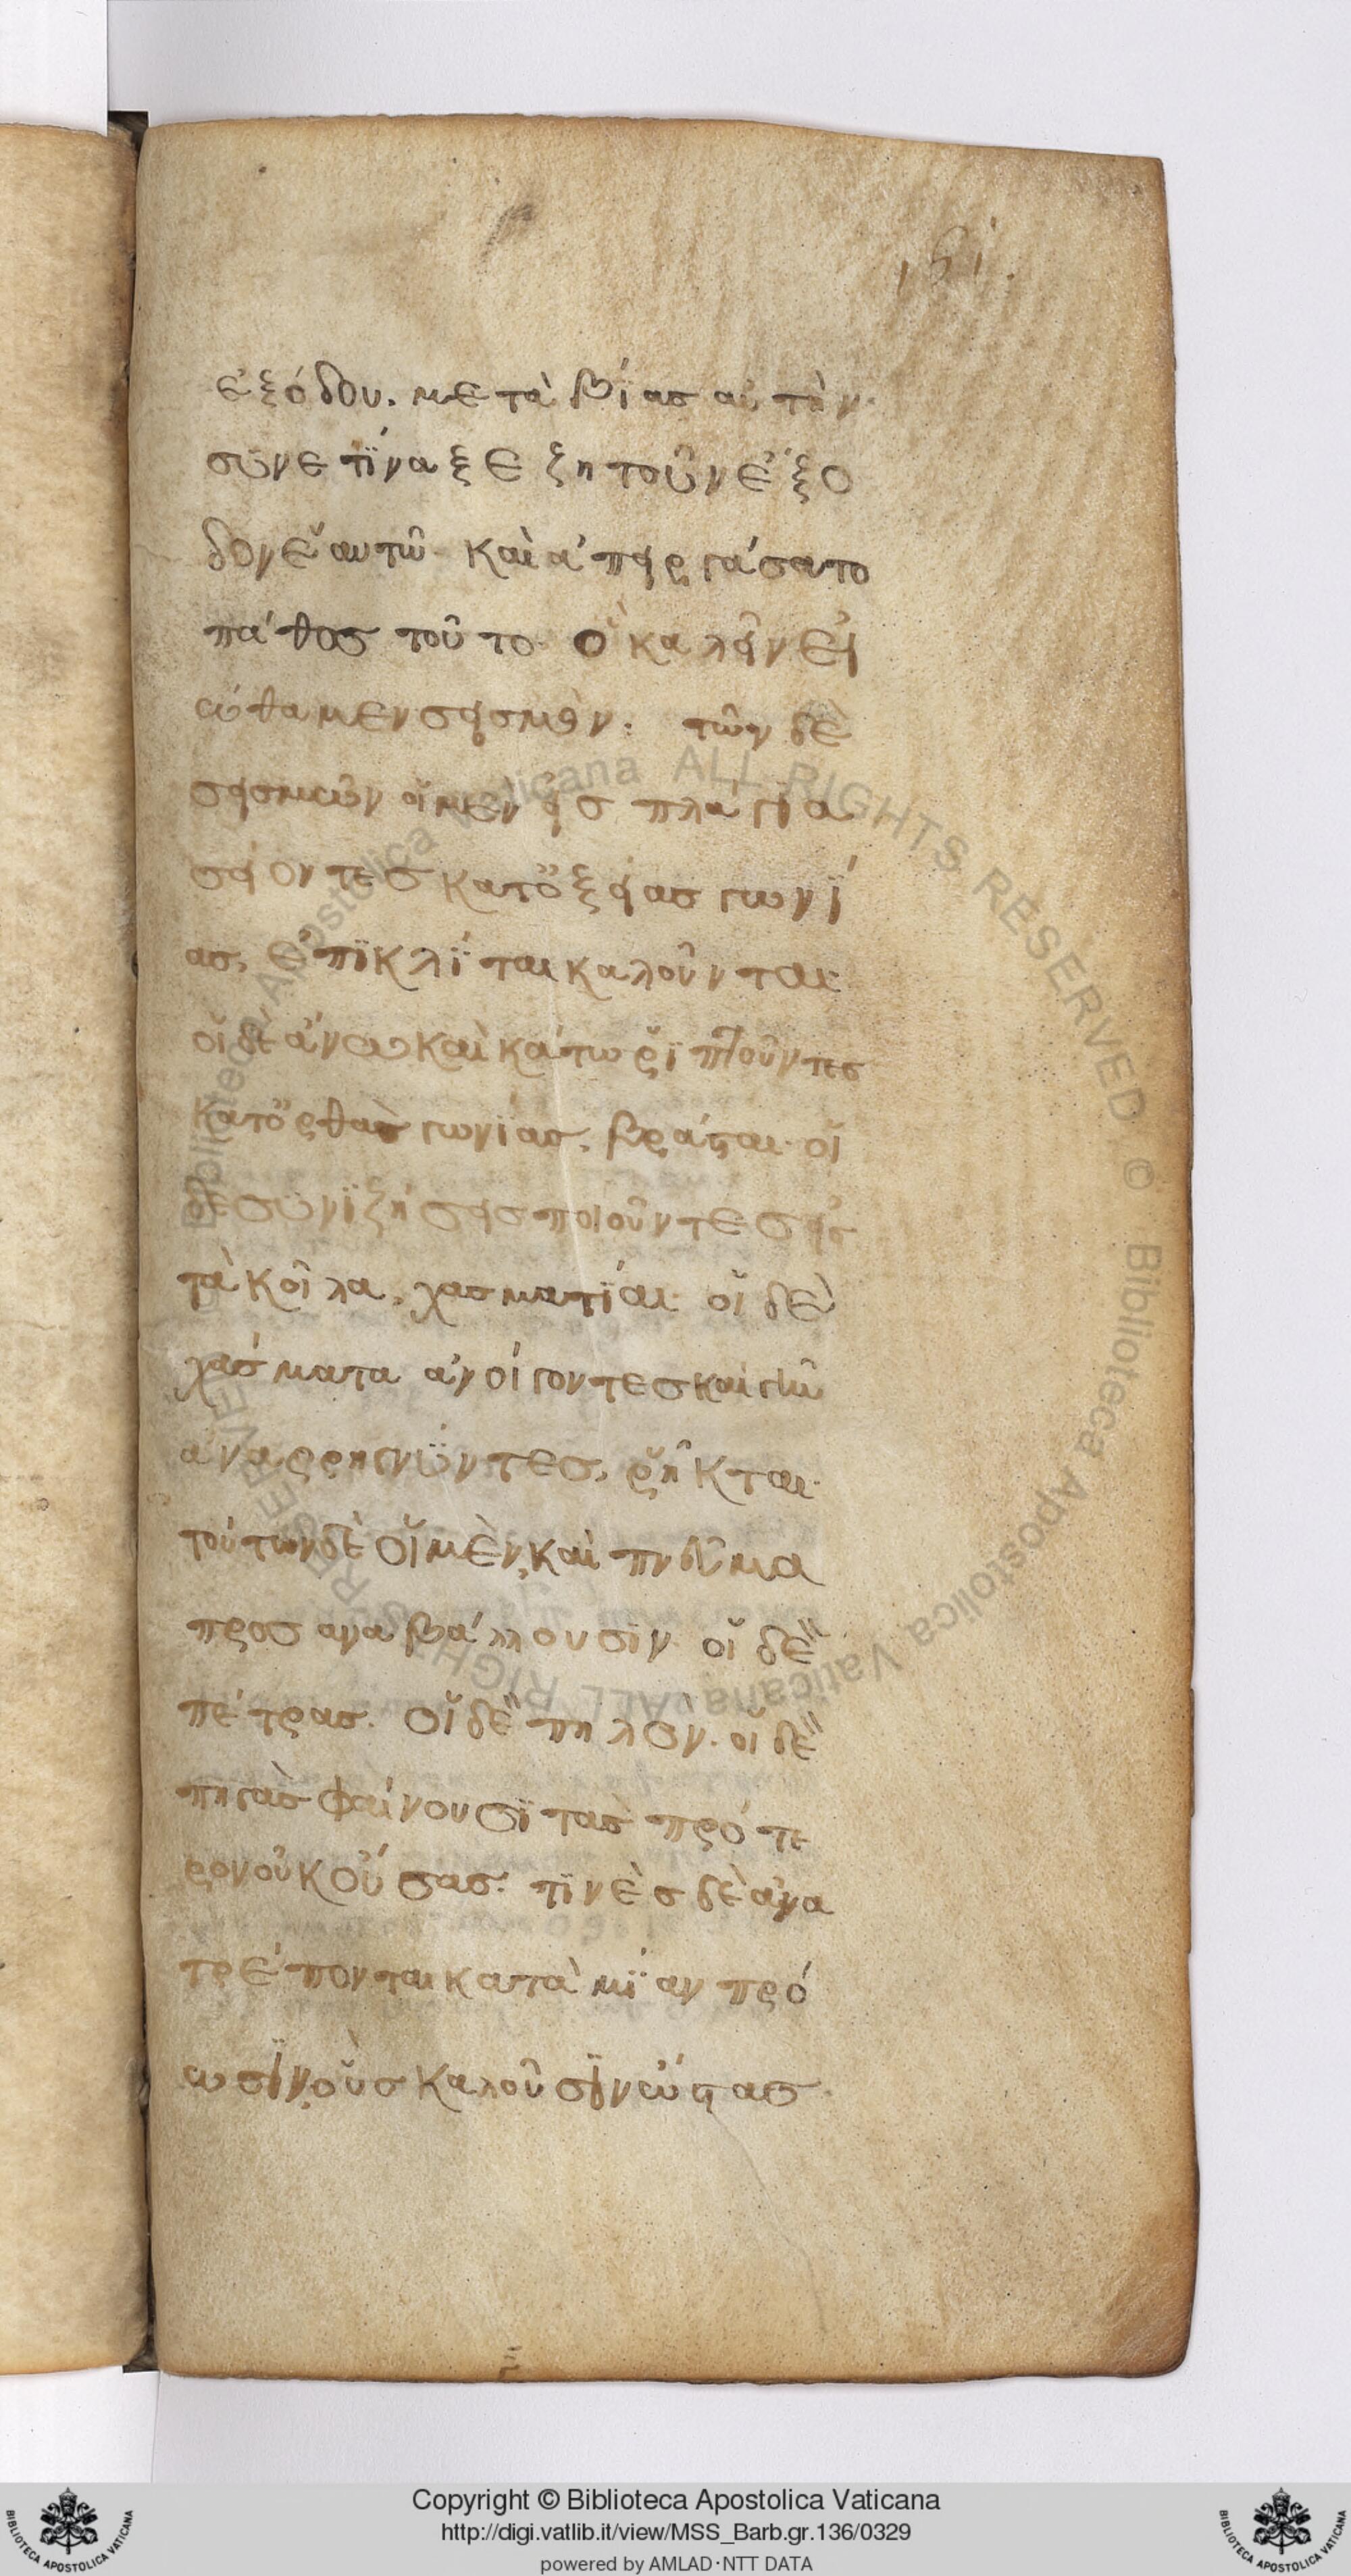 161.
ἐξόδου. μετὰ βΐας αὐτὴν·
συνετΐναξε ζητοῦν ἔξο
δον ἑαυτῶ· καὶ ἀπειργάσατο
πάθος τοῦτο· ὃ καλεῖν εἰ
ώθαμεν σεισμὸν: τῶν δὲ
σεισμῶν οἱ μὲν εἰς πλάγϊα
σείοντες κατ' ὀξείας γωνΐ
ας, ἐπϊκλΐται καλοῦνται·
οἱ δε ἄνω καὶ κάτω ῥϊπτοῦντες
κατ' ὀρθὰς γωνΐας, βράσται· οἱ
δε συνϊζήσεις ποιοῦντες εἰς
τὰ κοῖλα, χασματΐαι· οἱ δὲ
χάσματα ἀνοίγοντες καὶ γῆν
ἀναρρηγνύντες, ῥῆκται·
τούτων δὲ οἱ μὲν, καὶ πνεῦμα
προσαναβάλλουσϊν· οἱ δὲ
πέτρας. οἱ δὲ πηλον. οἱ δὲ
πηγὰς φαίνουσϊ τὰς πρότε
ρον οὐκ οὔσας: τϊνὲς δὲ ἀνα
τρέπονται κατὰ μΐαν πρό
ωσϊν, οὓς καλοῦσϊν ὤστας·
Copyright © Biblioteca Apostolica Vaticana
http://digi.vatlib.it/view/MSS_Barb.gr.136/0329
powered by AMLAD·NTT DATA
BIBLIOTECA APOSTOLICA VATICANA
BIBLIOTECA APOSTOLICA VATICANA